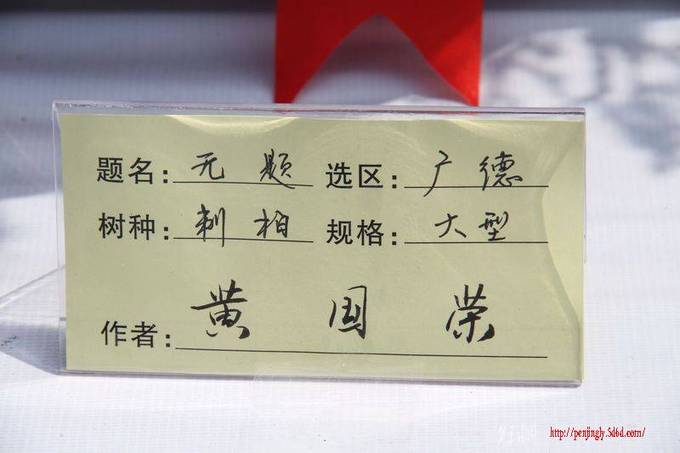 题名：无题 选区：广德
树种：刺柏 规格：大型
作者：黄国荣
http://penjingly.5d6d.com/